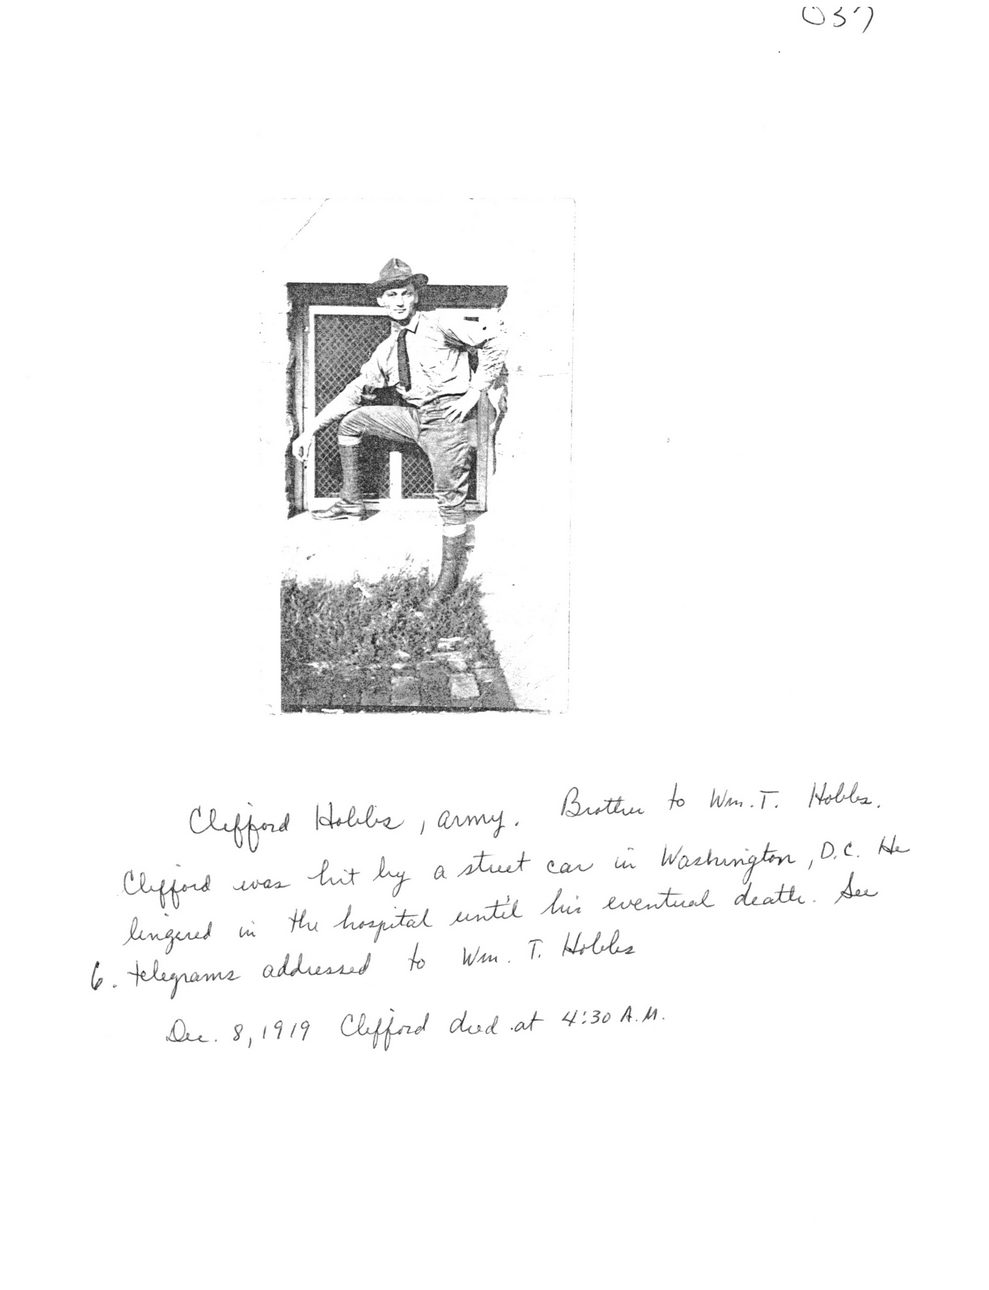 037
Clifford Hobbs, army. Brother to Wm. T. Hobbs.
Clifford was hit by a street car in Washington, D.C. He
lingered in the hospital until his eventual death. See
6. telegrams addressed to Wm. T. Hobbs
Dec. 8, 1919 Clifford died at 4:30 A.M.